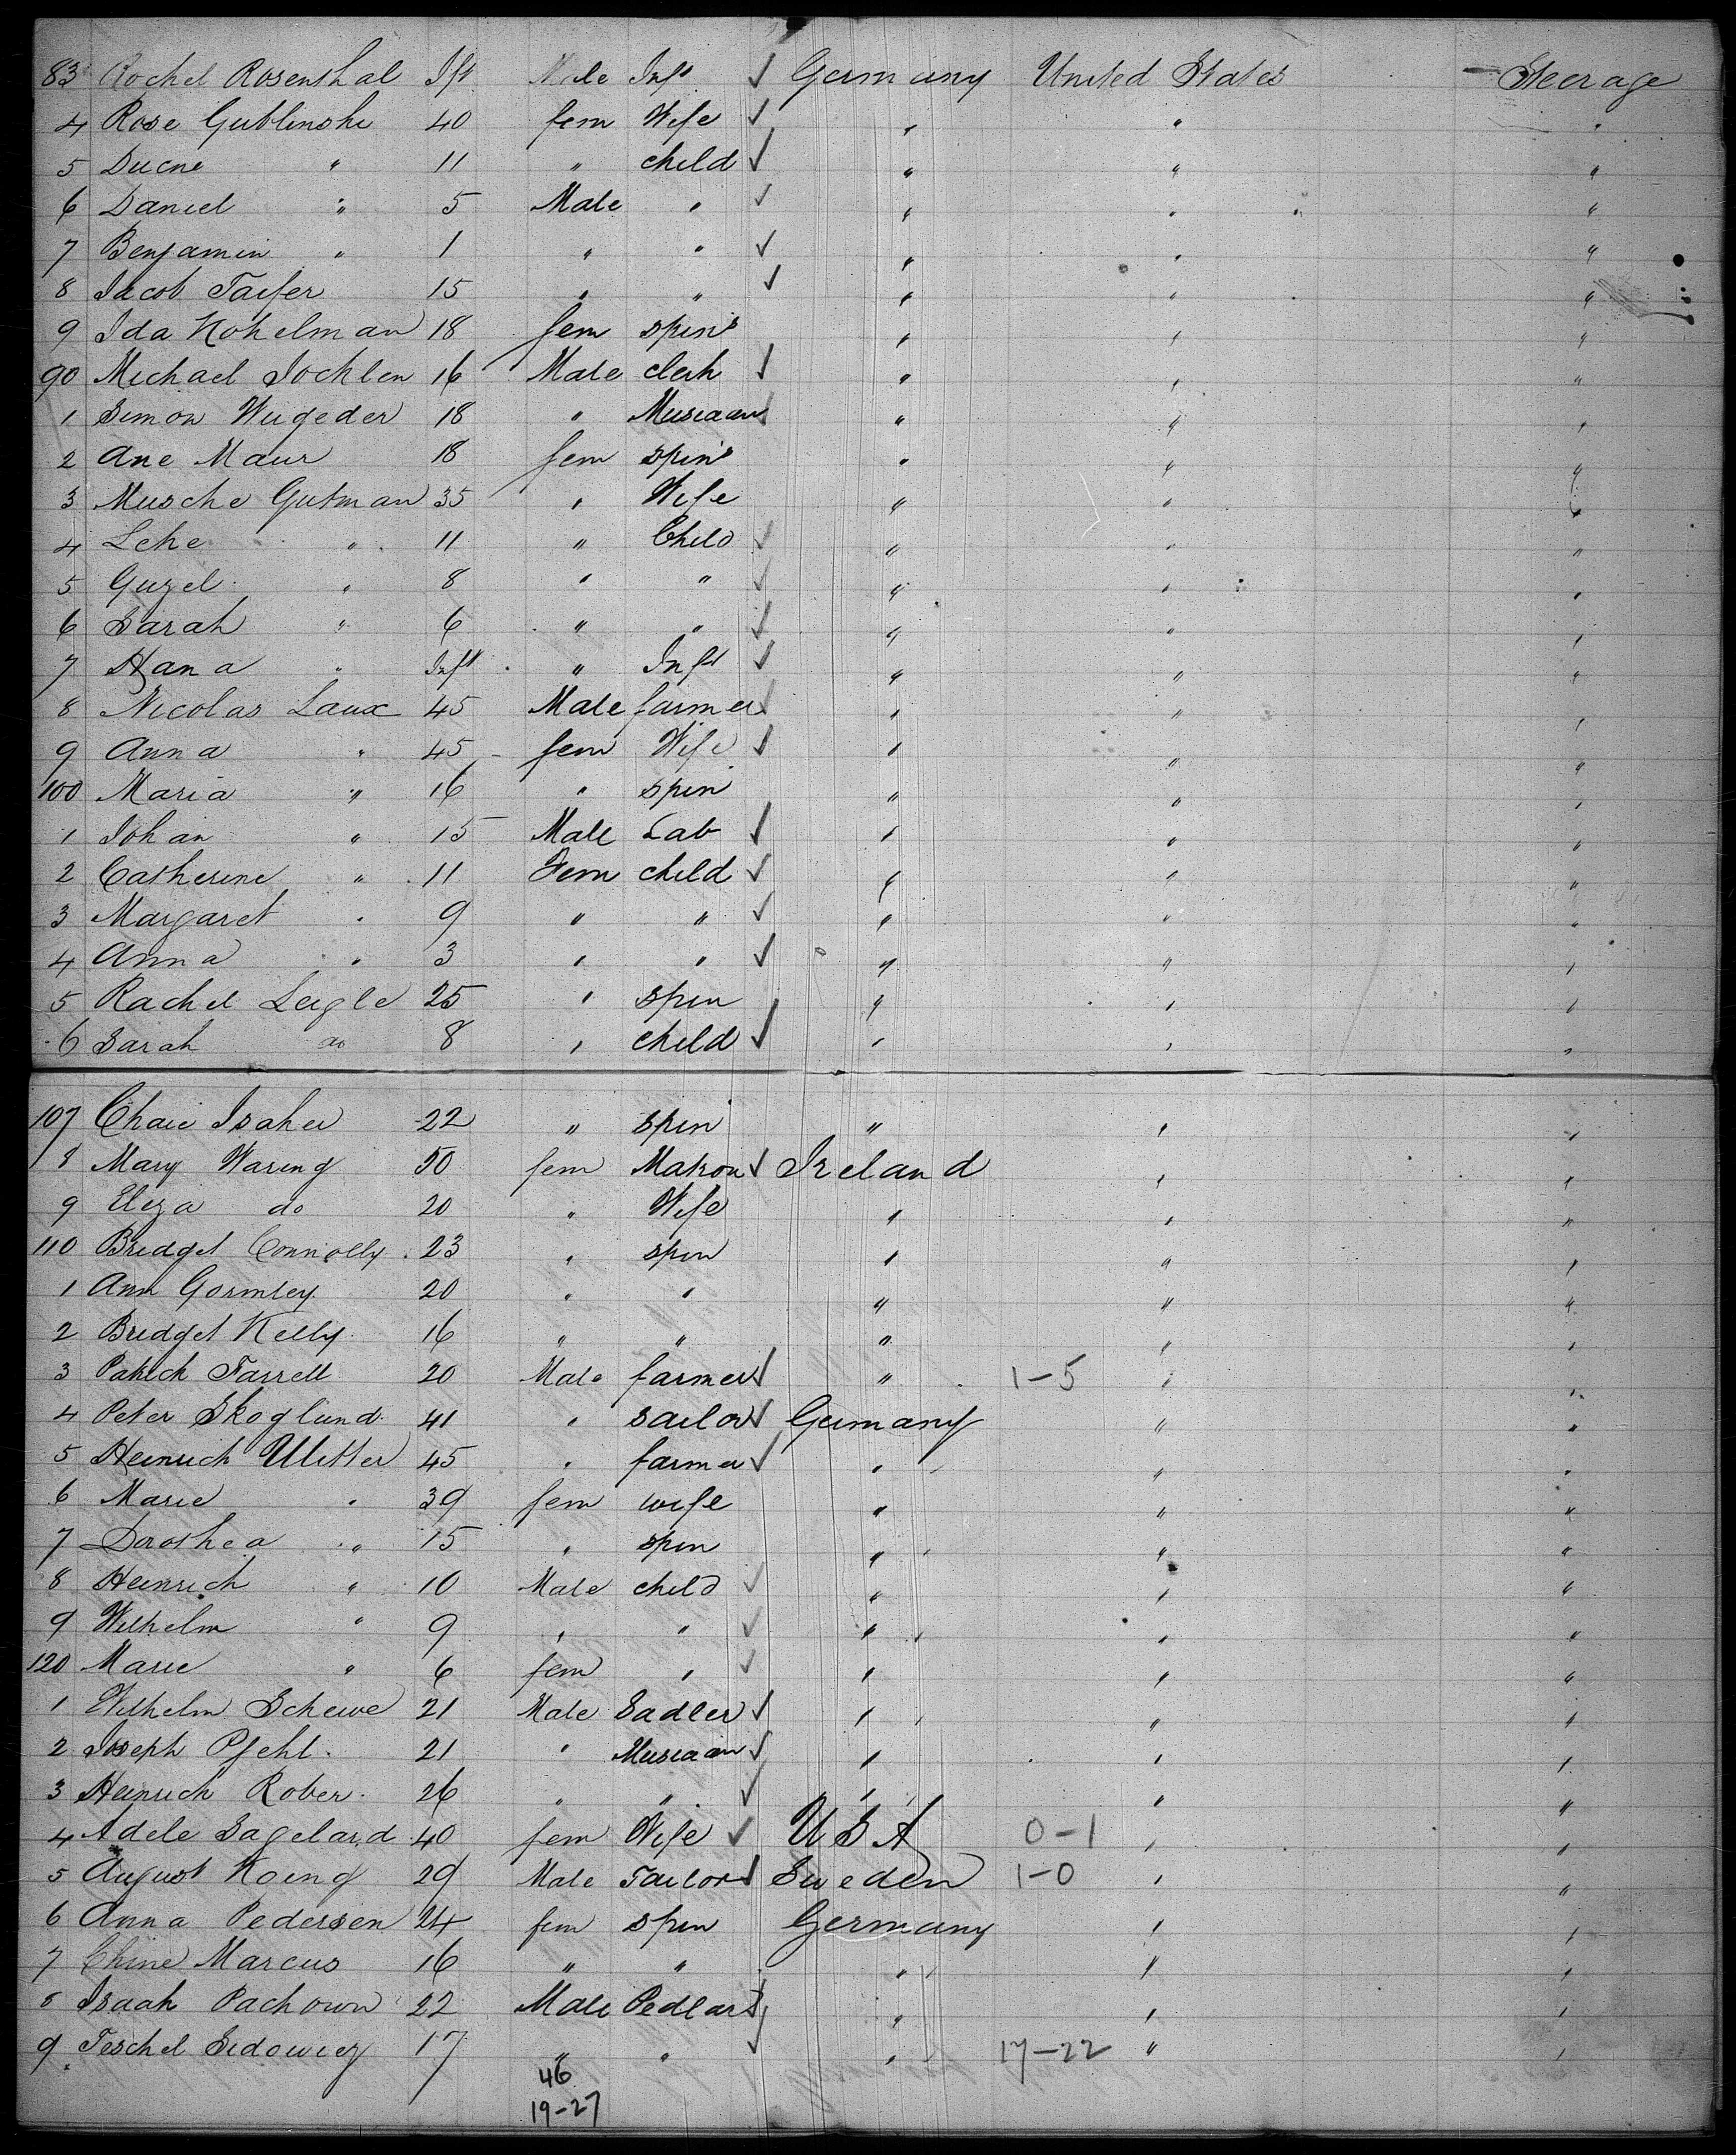 83 Rochel Rosenthal Ift Male Inft ✓ Germany United States Steerage
4 Rose Gublinski 40 fem Wife ✓ " " "
5 Ducne " 11 " child ✓ " " "
6 Daniel " 5 Male " ✓ " " "
7 Benjamin " 1 " " ✓ " " "
8 Jacob Taifer 15 " " ✓ " " "
9 Ida Kohelman 18 fem spins " " "
90 Michael Jochlen 16 Male clerk ✓ " " "
1 Simon Wugeder 18 " Musician ✓ " " "
2 Ane Maur 18 fem spins " " "
3 Musche Gutman 35 " Wife " " "
4 Lehe " 11 " Child ✓ " " "
5 Guzel " 8 " " ✓ " " "
6 Sarah " 6 " " ✓ " " "
7 Hana " Inft " Inft ✓ " " "
8 Nicolas Laux 45 Male farmer ✓ " " "
9 Anna " 45 fem Wife ✓ " " "
100 Maria " 16 " spin " " "
1 Johan " 15 Male Lab ✓ " " "
2 Catherine " 11 Fem child ✓ " " "
3 Margaret " 9 " " ✓ " " "
4 Anna " 3 " " ✓ " " "
5 Rachel Leigle 25 " spin " " "
6 Sarah do 8 " child ✓ " " "
107 Chaie Isaher 22 " spin " " "
8 Mary Waring 50 fem Matron ✓ Ireland " "
9 Eliza do 20 " Wife " " "
110 Bridget Connolly 23 " spin " " "
1 Ann Gormley 20 " " " " "
2 Bridget Kelly 16 " " " " "
3 Patrick Farrell 20 Male farmer ✓ " 1-5 " "
4 Peter Skoglund 41 " sailor ✓ Germany " "
5 Heinrich Ulitter 45 " farmer ✓ " " "
6 Marie " 39 fem wife " " "
7 Dorothea " 15 " spin " " "
8 Heinrich " 10 Male child ✓ " " "
9 Wilhelm " 9 " " ✓ " " "
120 Marie " 6 fem " ✓ " " "
1 Wilhelm Schewe 21 Male Sadler ✓ " " "
2 Joseph Pfehl 21 " Musician ✓ " " "
3 Heinrich Rober 26 " " ✓ " " "
4 Adele Sageland 40 fem Wife ✓ U S A 0-1 " "
5 August Koeng 29 Male Tailor ✓ Sweden 1-0 " "
6 Anna Pedersen 24 fem spin Germany " "
7 Chine Marcus 16 " " " " "
8 Isaak Pachown 22 Male Pedlar ✓ " " "
9 Teschel Sidowicz 17 " " ✓ " 17-22 " "
46
19-27